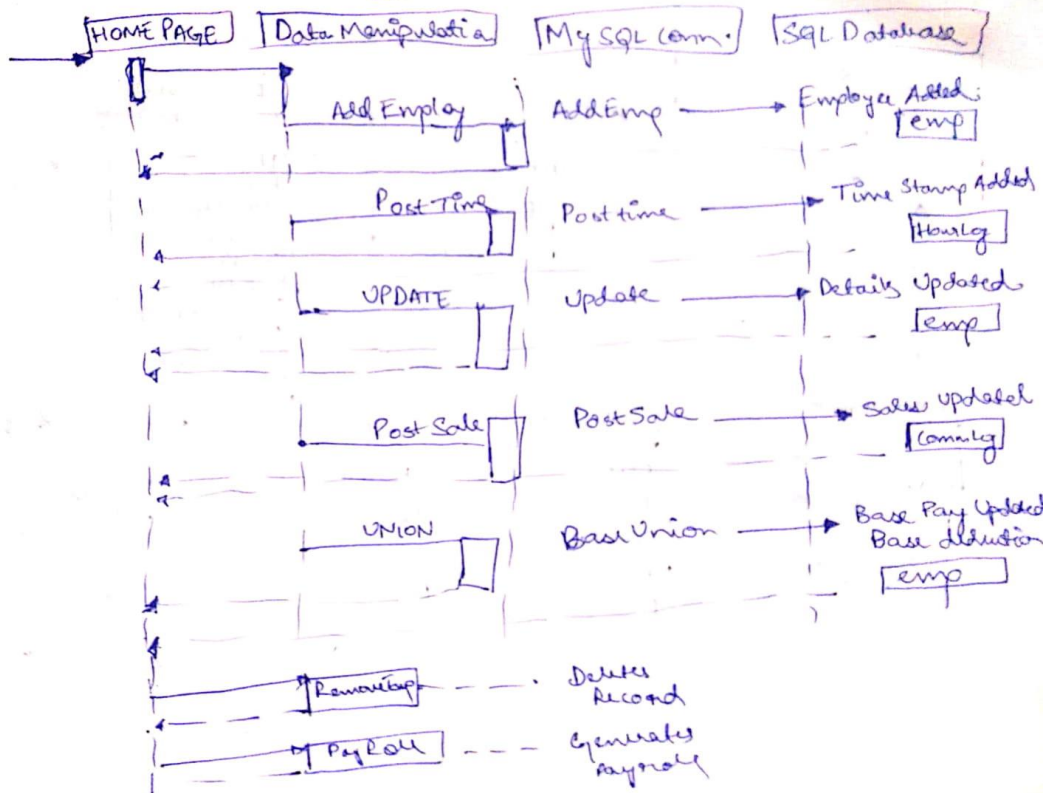 HOME PAGE Data Manipulatio MySQL Conn. SQL Database
Add Employ AddEmp Employee Added
emp
Post Time Posttime Time Stamp Added
HourLg
UPDATE Update Details Updated
emp
Post Sale PostSale Sales updated
CommLg
UNION BaseUnion Base Pay Updated
Base deduction
emp
RemoveEmp Deletes
Record
PayRoll Generates
Payroll